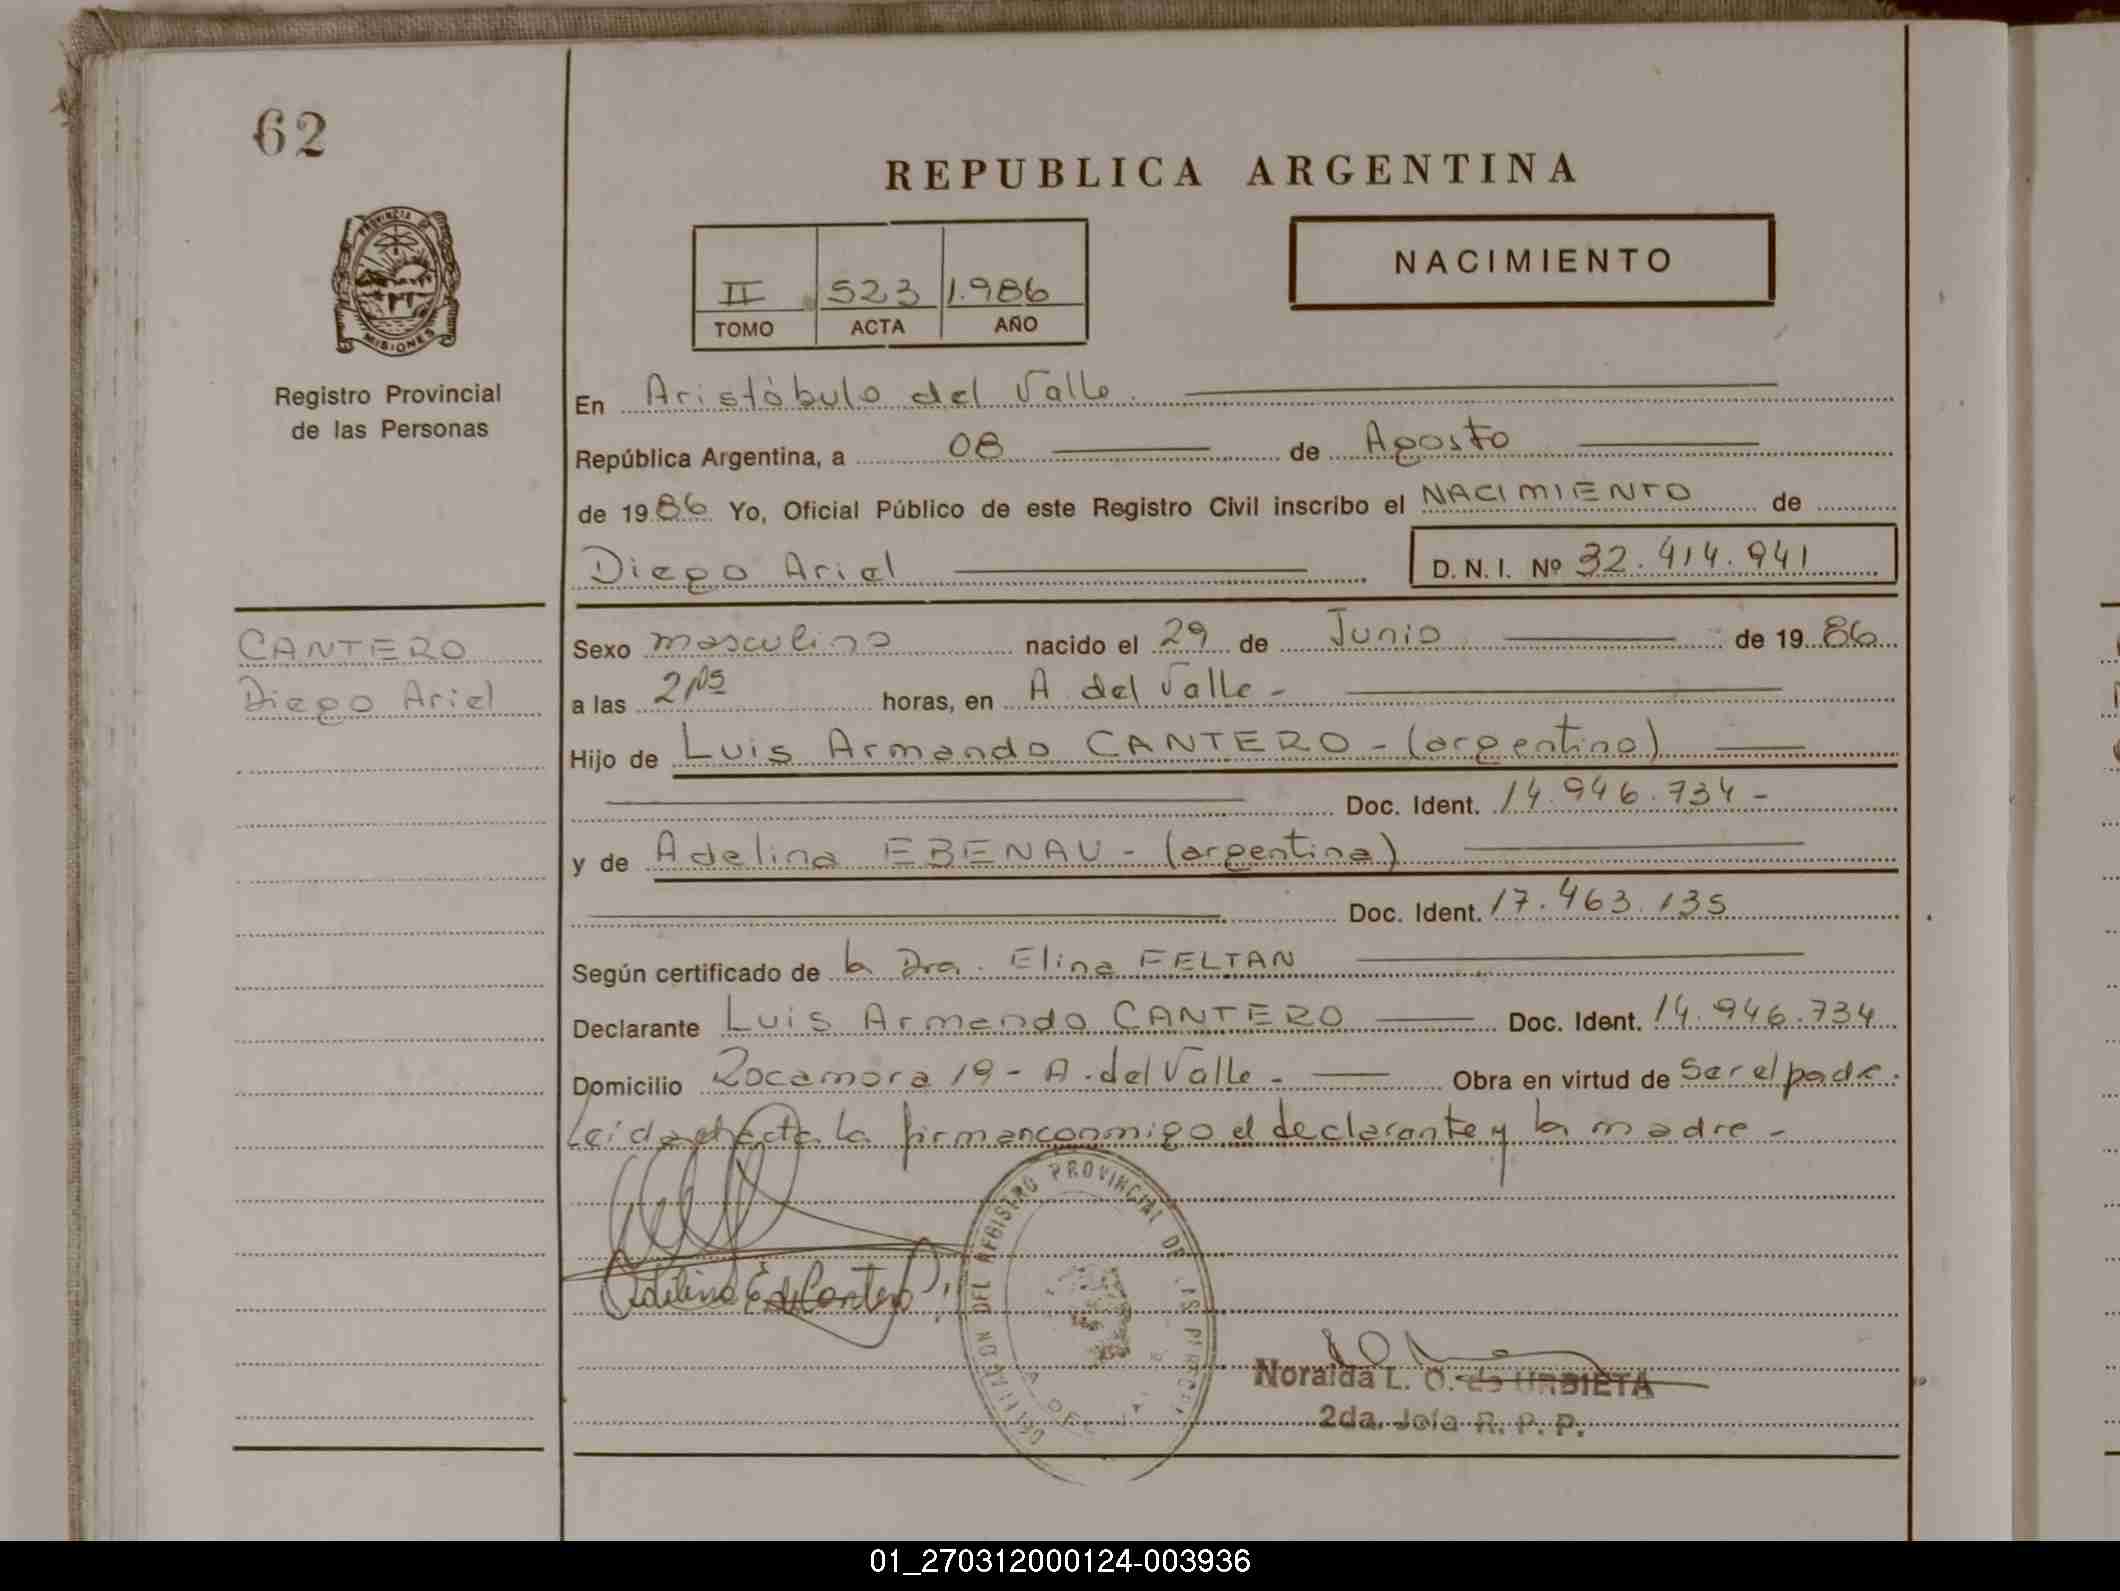 62
REPUBLICA ARGENTINA
PROVINCIA DE
MISIONES
II 523 1.986
TOMO ACTA AÑO
NACIMIENTO
Registro Provincial
de las Personas
En Aristóbulo del Valle.
República Argentina, a 08 de Agosto
de 1986 Yo, Oficial Público de este Registro Civil inscribo el NACIMIENTO de
Diego Ariel D. N. I. Nº 32.414.941
CANTERO
Diego Ariel
Sexo masculino nacido el 29 de Junio de 1986
a las horas, en A. del Valle -
Hijo de Luis Armando CANTERO - (argentino)
Doc. Ident. 14.946.734 -
y de Adelina EBENAU - (argentina)
Doc. Ident. 17.463.135
Según certificado de la Dra. Elina FELTAN
Declarante Luis Armando CANTERO Doc. Ident. 14.946.734
Domicilio Rocamora 19 - A. del Valle - Obra en virtud de ser el padre.
Leida el acta la firman conmigo el declarante y la madre -
Adelina E. de Cantero
DEL REGISTRO PROVINCIAL DE LAS
Noralda L. O. de URBIETA
2da. Jefa R. P. P.
01_270312000124-003936